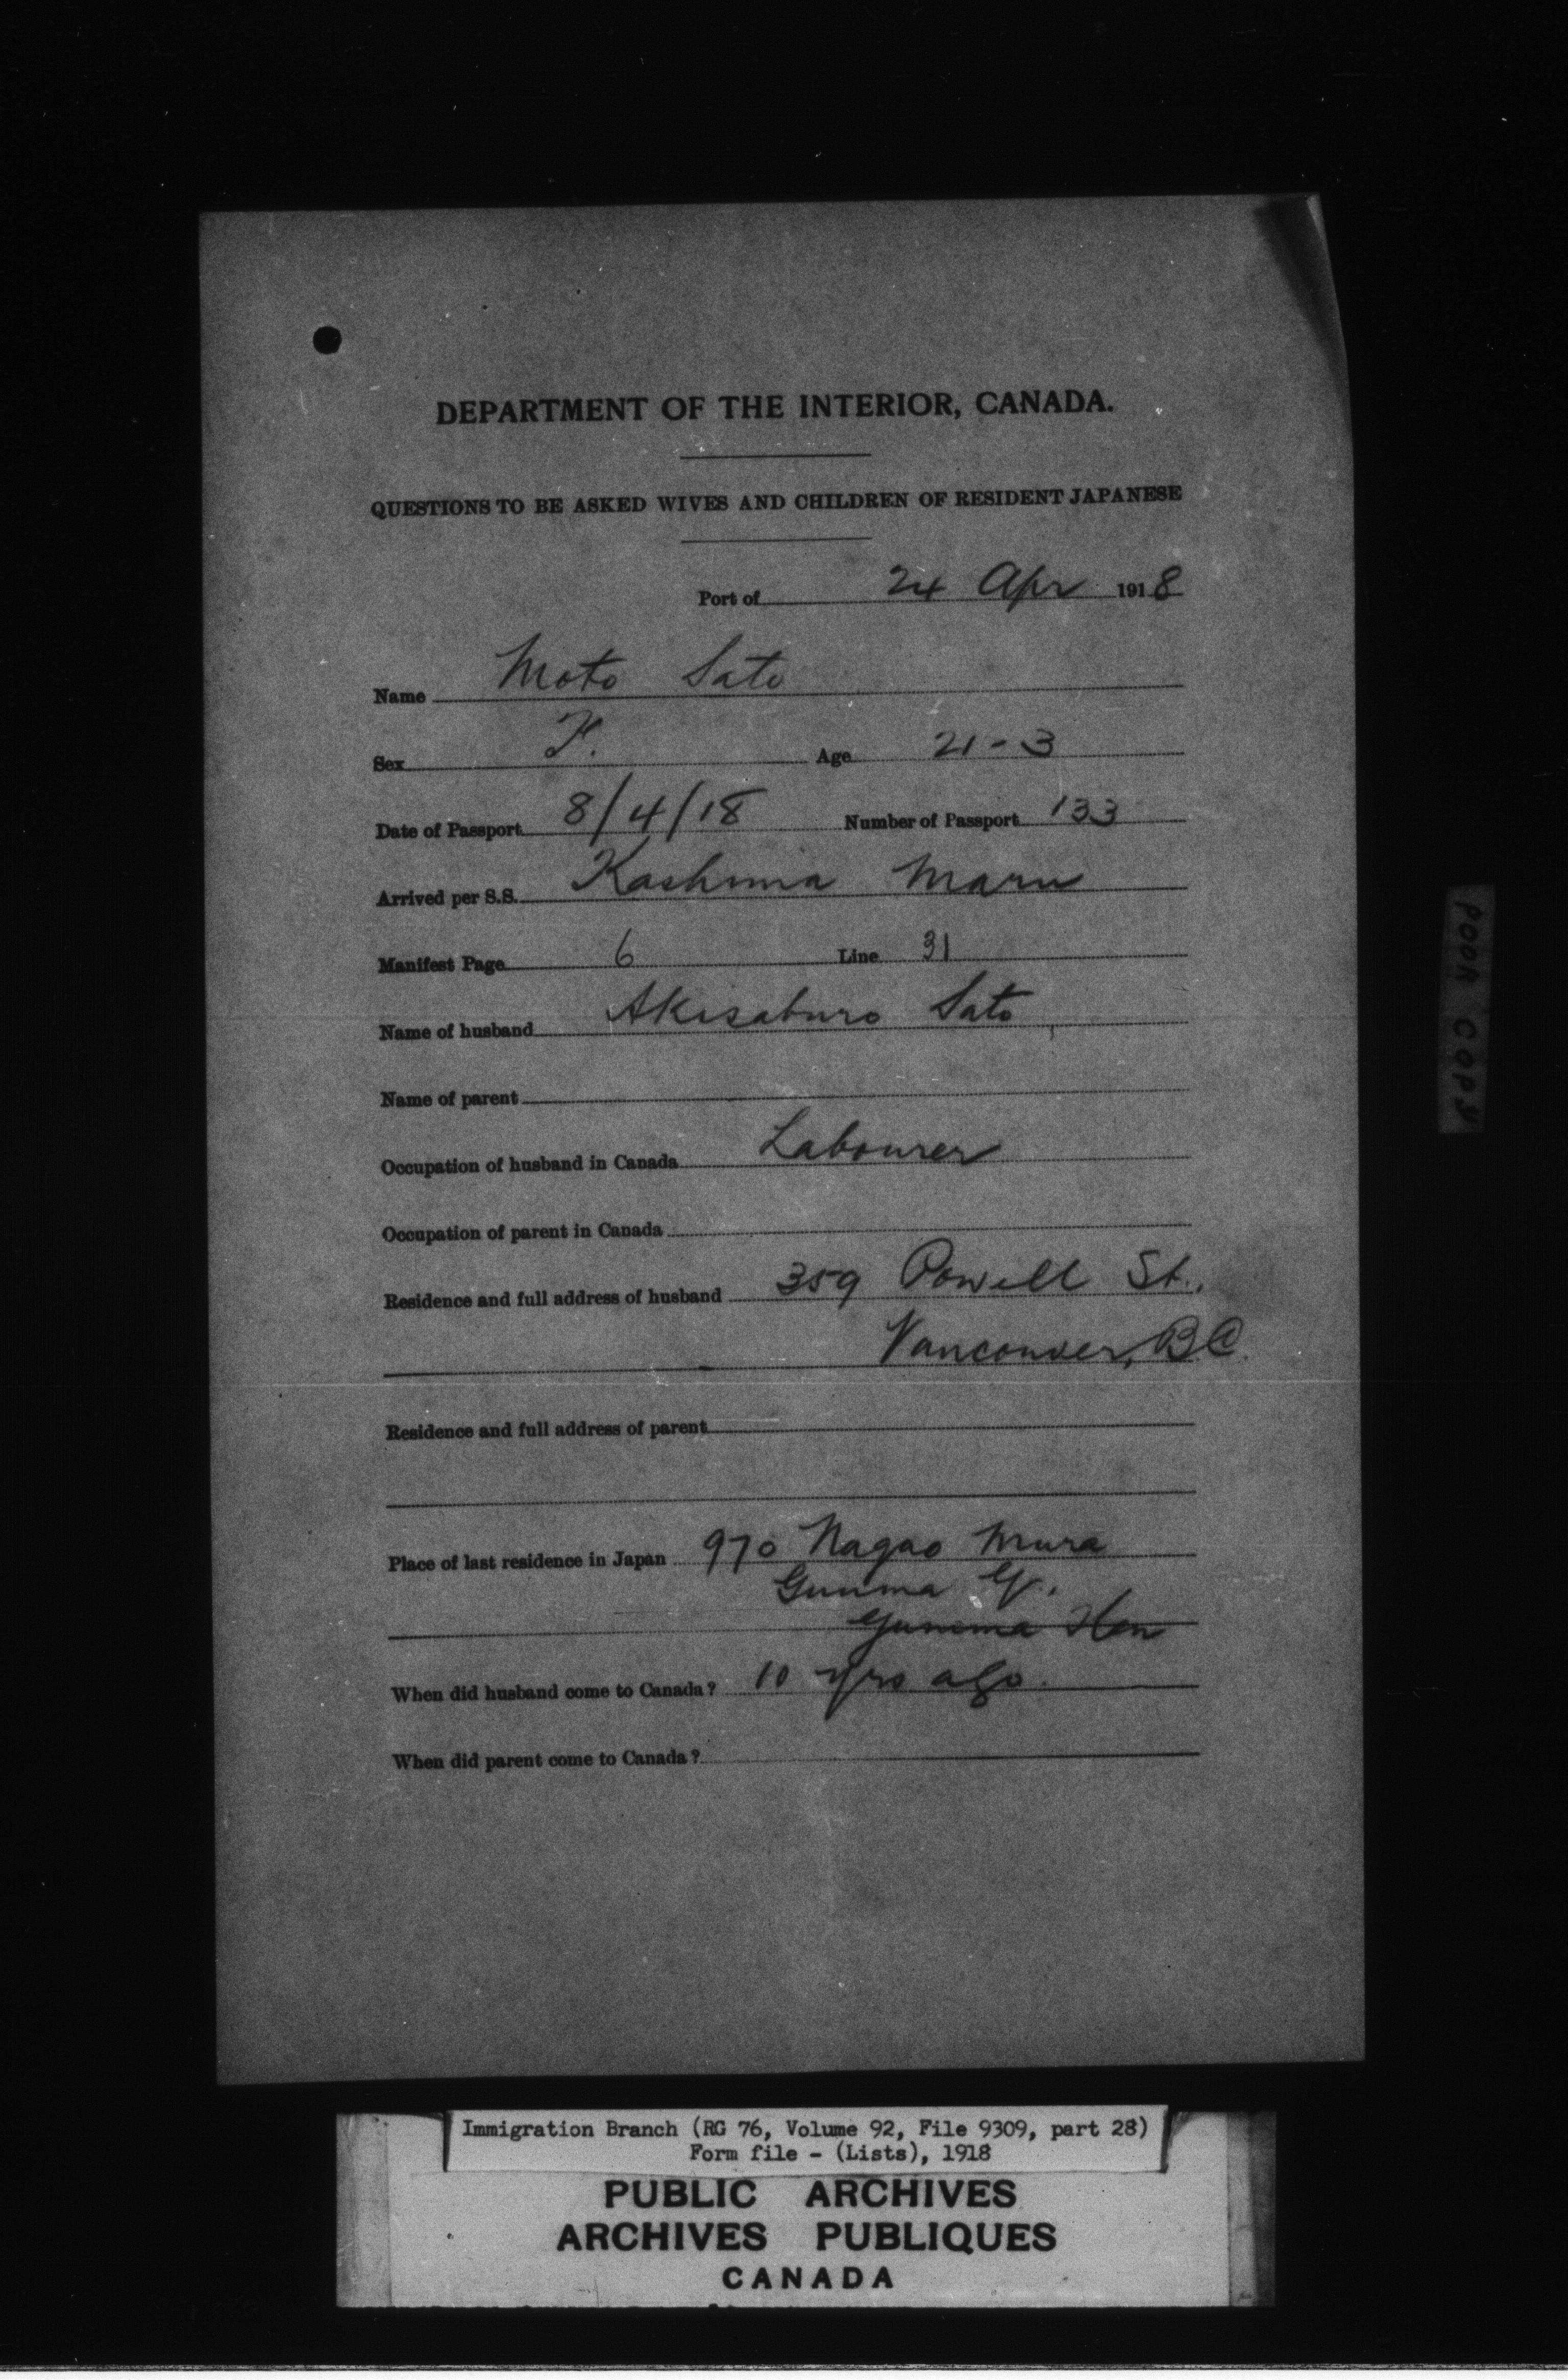 DEPARTMENT OF THE INTERIOR, CANADA.
QUESTIONS TO BE ASKED WIVES AND CHILDREN OF RESIDENT JAPANESE
Port of 24 Apr 1918
Name Moto Sato
Sex F. Age 21-3
Date of Passport 8/4/18 Number of Passport 133
Arrived per S.S. Kashima Maru
Manifest Page 6 Line 31
Name of husband Akisaburo Sato
Name of parent
Occupation of husband in Canada Labourer
Occupation of parent in Canada
Residence and full address of husband 359 Powell St.,
Vancouver, B.C.
Residence and full address of parent
Place of last residence in Japan 970 Nagao Mura
Gunma G.
Gumma Ken
When did husband come to Canada? 10 yrs ago.
When did parent come to Canada?
POOR COPY
Immigration Branch (RG 76, Volume 92, File 9309, part 28)
Form file - (Lists), 1918
PUBLIC ARCHIVES
ARCHIVES PUBLIQUES
CANADA